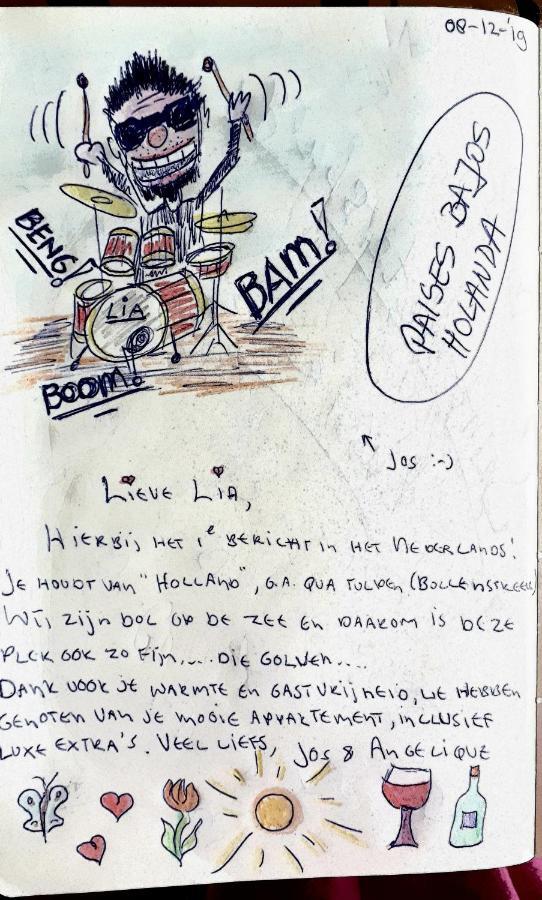 08-12-'19
BENG!
BAM!
LIA
BOOM!
PAISES BAJOS
HOLANDA
Jos :-)
LIEVE LIA,
HIERBIJ HET 1e BERICHT IN HET NEDERLANDS!
JE HOUDT VAN "HOLLAND", O.A. QUA TULPEN (BOLLENSTREEK)
WIJ ZIJN DOL OP DE ZEE EN DAAROM IS DEZE
PLEK OOK ZO FIJN.... DIE GOLVEN....
DANK VOOR JE WARMTE EN GASTVRIJHEID, WE HEBBEN
GENOTEN VAN JE MOOIE APPARTEMENT, INCLUSIEF
LUXE EXTRA'S. VEEL LIEFS, JOS & ANGELIQUE